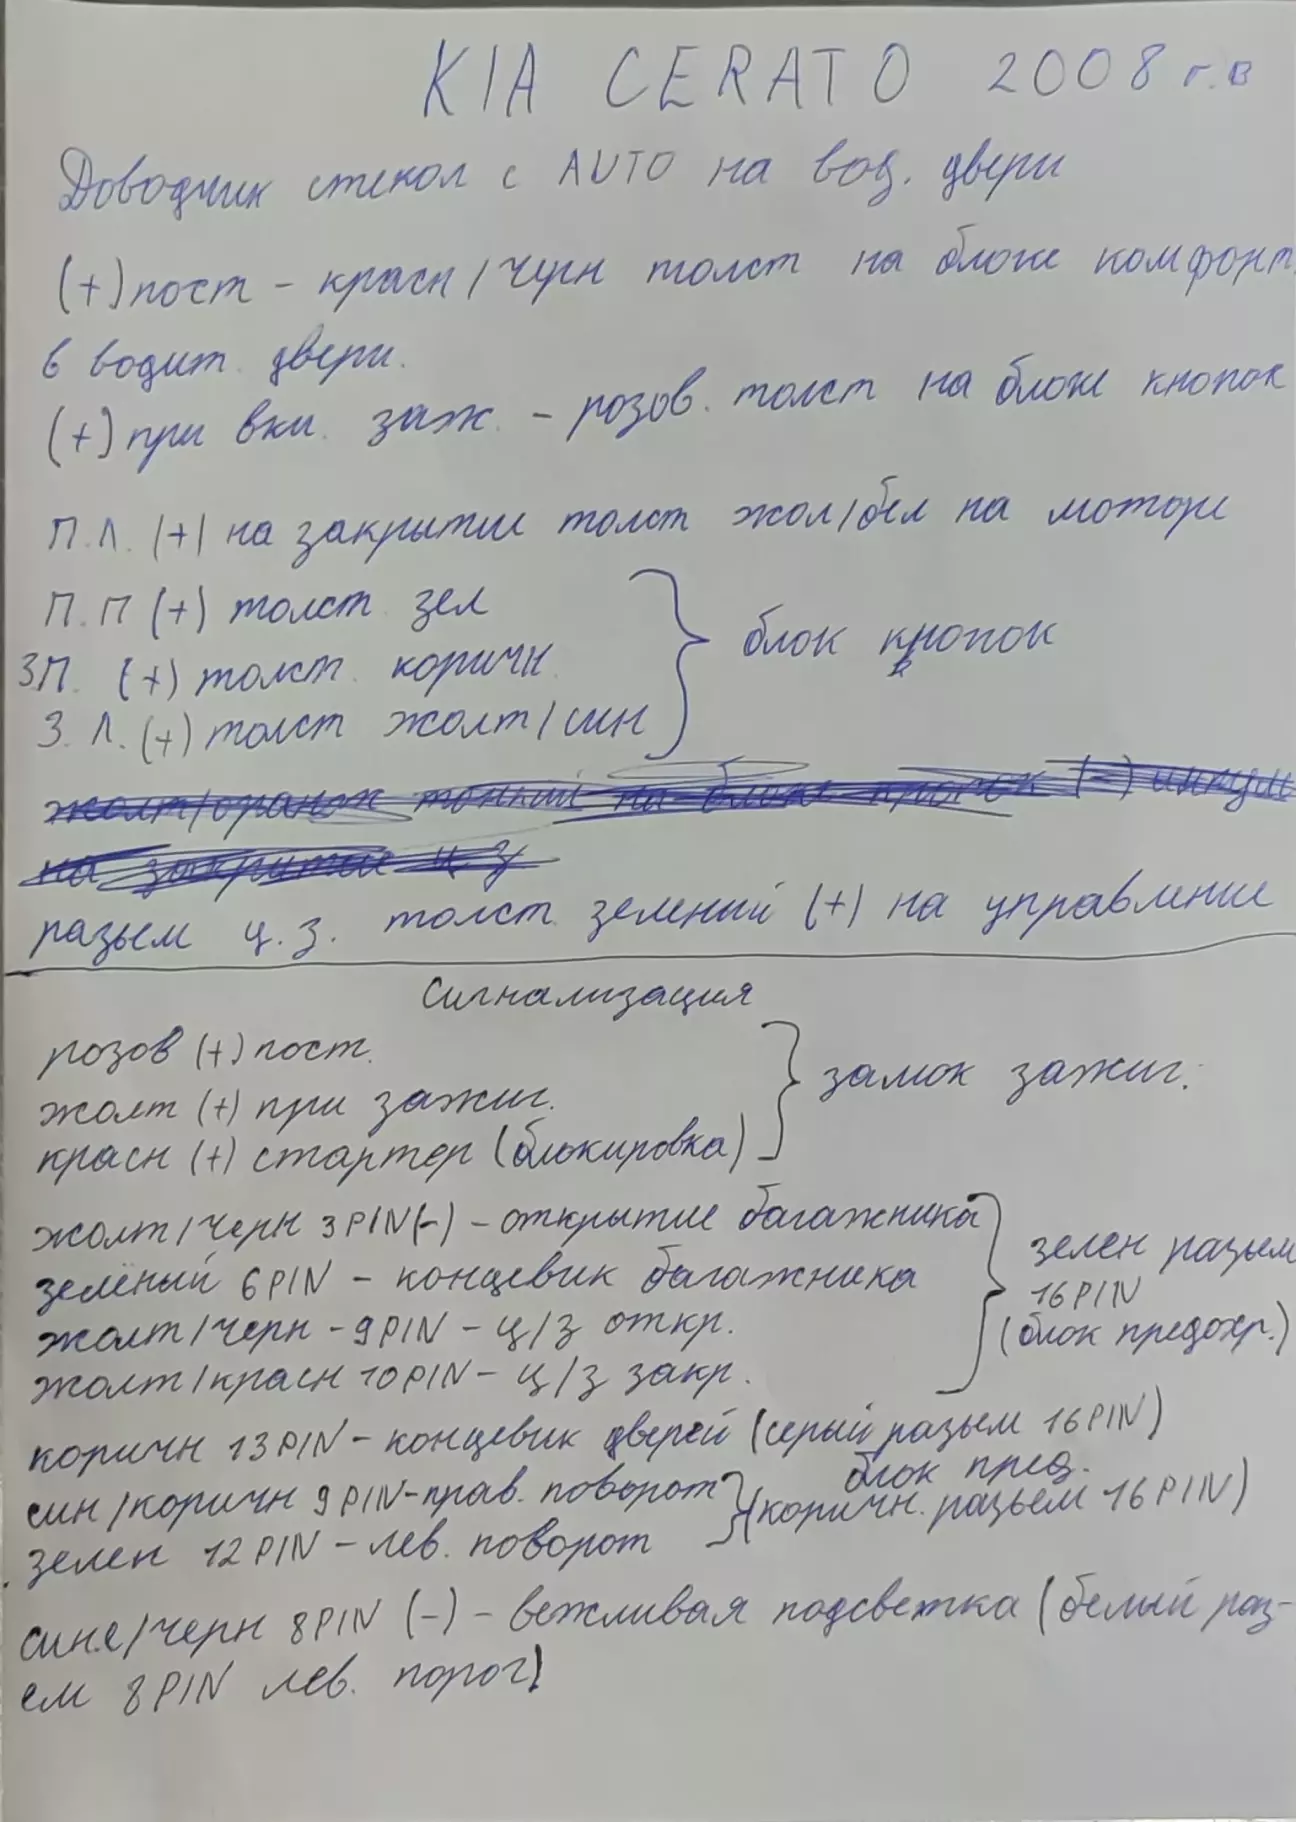 KIA CERATO 2008 г.в
Доводчик стекол с AUTO на вод. двери
(+) пост - красн/черн толст на блоке комфорт.
в водит. двери.
(+) при вкл. заж. - розов. толст на блоке кнопок
П.Л. (+) на закрытие толст жол/бел на моторе
П.П (+) толст зел
ЗП. (+) толст. коричн.
З.Л. (+) толст жолт/син
блок кнопок
жолт/оранж тонкий на блоке кнопок (-) импул
на закрытие ц з
разьем ц.з. толст зелений (+) на управление
Сигнализация
розов (+) пост.
жолт (+) при зажиг.
красн (+) стартер (блокировка)
замок зажиг.
жолт/черн 3PIN(-) - открытие багажника
зелёный 6PIN - концевик багажника
жолт/черн - 9PIN - ц/з откр.
жолт/красн 10PIN - ц/з закр.
зелен разьем
16PIN
(блок предохр.)
коричн 13PIN - концевик дверей (серый разьем 16PIN)
блок пред.
син/коричн 9PIN - прав. поворот
зелен 12PIN - лев. поворот
(коричн. разьем 16PIN)
сине/черн 8PIN (-) - вежливая подсветка (белый раз-
ем 8PIN лев. порог)